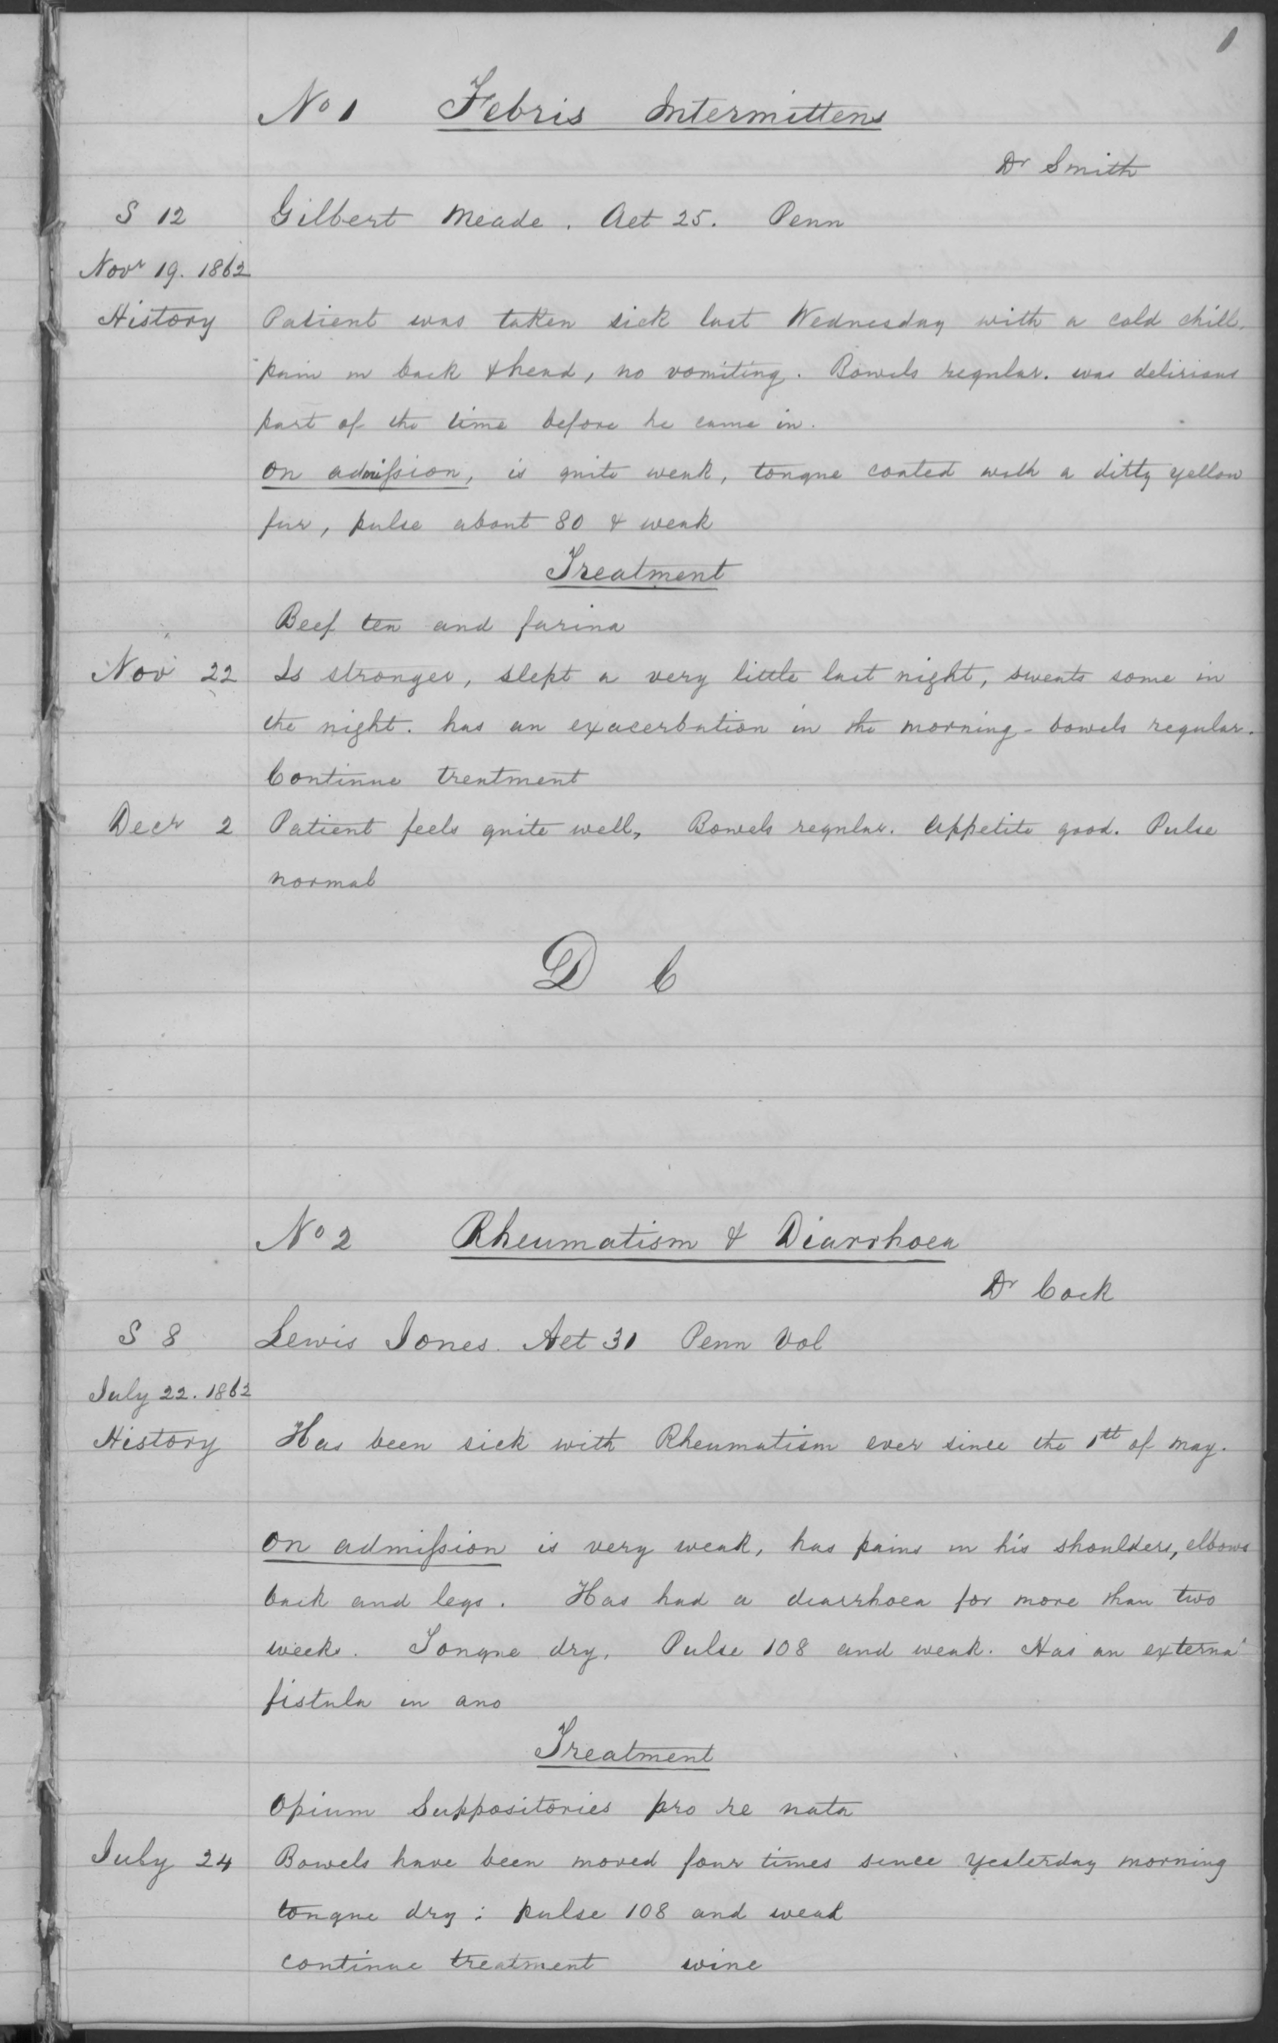 1
No 1 Febris Intermittens
Dr Smith
S 12 Gilbert Meade. Aet 25. Penn
Novr 19. 1862
History Patient was taken sick last Wednesday with a cold chill.
pain in back & head, no vomiting. Bowels regular. was delirious
part of the time before he came in.
On admission, is quite weak, tongue coated with a ditty yellow
fur, pulse about 80 & weak
Treatment
Beef tea and farina
Nov 22 Is stronger, slept a very little last night, sweats some in
the night. has an exacerbation in the morning - bowels regular.
Continue treatment
Decr 2 Patient feels quite well, Bowels regular. Appetite good. Pulse
normal
D C
No 2 Rheumatism & Diarrhoea
Dr Cock
S 8 Lewis Jones. Aet 31 Penn Vol
July 22. 1862
History Has been sick with Rheumatism ever since the 1th of May.
On admission is very weak, has pains in his shoulders, elbows
back and legs. Has had a diarrhoea for more than two
weeks. Tongue dry. Pulse 108 and weak. Has an externa
fistula in ano
Treatment
Opium Suppositories pro re nata
July 24 Bowels have been moved four times since yesterday morning
tongue dry; pulse 108 and weak
continue treatment wine